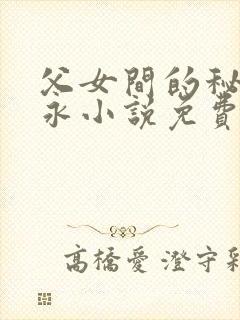 父女間的秘
永小說免費
高橋愛 澄守彩